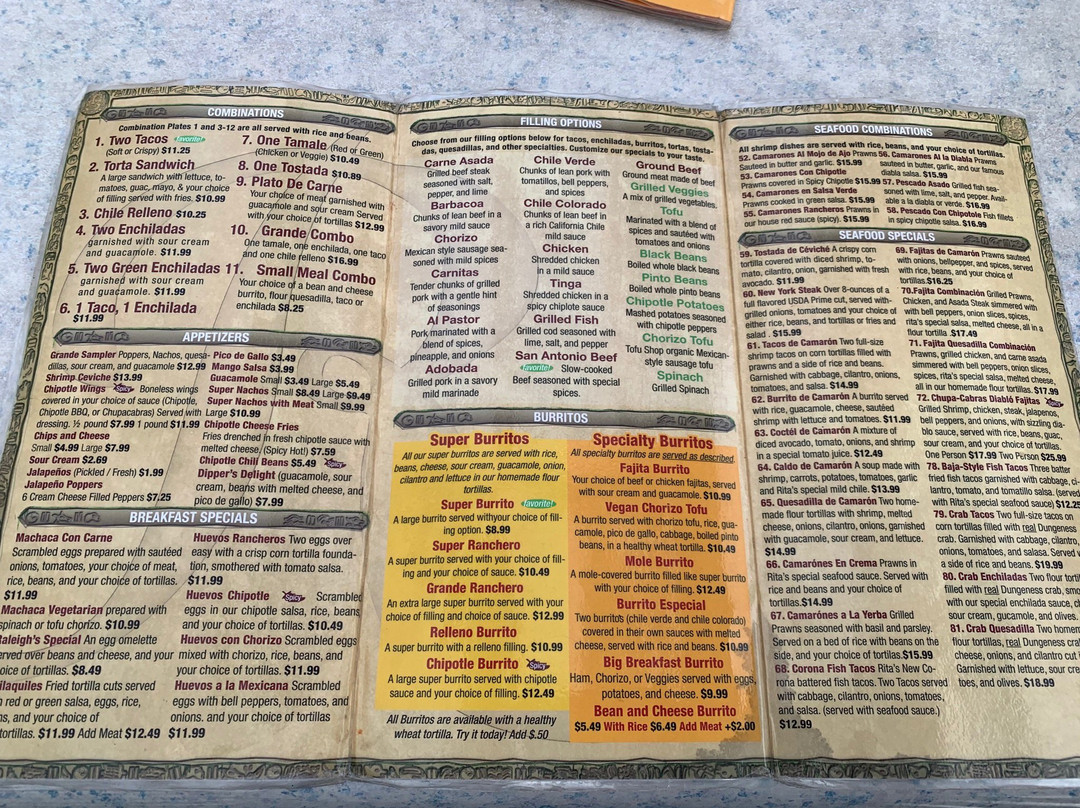 COMBINATIONS
Combination Plates 1 and 3-12 are all served with rice and beans.
1. Two Tacos favorite!
(Soft or Crispy) $11.25
2. Torta Sandwich
A large sandwich with lettuce, to-
matoes, guac, mayo, & your choice
of filling served with fries. $10.99
3. Chile Relleno $10.25
4. Two Enchiladas
garnished with sour cream
and guacamole. $11.99
5. Two Green Enchiladas
garnished with sour cream
and guacamole. $11.99
6. 1 Taco, 1 Enchilada
$11.99
7. One Tamale (Red or Green)
(Chicken or Veggie) $10.49
8. One Tostada $10.89
9. Plato De Carne
Your choice of meat garnished with
guacamole and sour cream Served
with your choice of tortillas $12.99
10. Grande Combo
One tamale, one enchilada,
and one chile relleno $16.99
11. Small Meal Combo
Your choice of a bean and cheese
burrito, flour quesadilla, taco or
enchilada $8.25
APPETIZERS
Grande Sampler Poppers, Nachos, quesa-
dillas, sour cream, and guacamole $12.99
Shrimp Ceviche $13.99
Chipotle Wings Spicy Boneless wings
covered in your choice of sauce (Chipotle,
Chipotle BBQ, or Chupacabras) Served with
dressing. ½ pound $7.99 1 pound $11.99
Chips and Cheese
Small $4.99 Large $7.99
Sour Cream $2.69
Jalapeños (Pickled / Fresh) $1.99
Jalapeño Poppers
6 Cream Cheese Filled Peppers $7.25
Pico de Gallo $3.49
Mango Salsa $3.99
Guacamole Small $3.49 Large $5.49
Super Nachos Small $8.49 Large $9.49
Super Nachos with Meat Small $9.99
Large $10.99
Chipotle Cheese Fries
Fries drenched in fresh chipotle sauce with
melted cheese, (Spicy Hot!) $7.59
Chipotle Chili Beans $5.49 Spicy
Dipper's Delight (guacamole, sour
cream, beans with melted cheese, and
pico de gallo) $7.99
BREAKFAST SPECIALS
Machaca Con Carne
Scrambled eggs prepared with sautéed
onions, tomatoes, your choice of meat,
rice, beans, and your choice of tortillas.
$11.99
Machaca Vegetarian prepared with
spinach or tofu chorizo. $10.99
aleigh's Special An egg omelette
erved over beans and cheese, and your
oice of tortillas. $8.49
ilaquiles Fried tortilla cuts served
red or green salsa, eggs, rice,
ns, and your choice of
tortillas. $11.99 Add Meat $12.49
Huevos Rancheros Two eggs over
easy with a crisp corn tortilla founda-
tion, smothered with tomato salsa.
$11.99
Huevos Chipotle Spicy Scrambled
eggs in our chipotle salsa, rice, beans
and your choice of tortillas. $10.49
Huevos con Chorizo Scrambled eggs
mixed with chorizo, rice, beans, and
your choice of tortillas. $11.99
Huevos a la Mexicana Scrambled
eggs with bell peppers, tomatoes, and
onions. and your choice of tortillas
$11.99
FILLING OPTIONS
Choose from our filling options below for tacos, enchiladas, burritos, tortas, tosta-
das, quesadillas, and other specialties. Customize our specials to your taste.
Carne Asada
Grilled beef steak
seasoned with salt,
pepper, and lime
Barbacoa
Chunks of lean beef in a
savory mild sauce
Chorizo
Mexican style sausage sea-
soned with mild spices
Carnitas
Tender chunks of grilled
pork with a gentle hint
of seasonings
Al Pastor
Pork marinated with a
blend of spices,
pineapple, and onions
Adobada
Grilled pork in a savory
mild marinade
Chile Verde
Chunks of lean pork with
tomatillos, bell peppers,
and spices
Chile Colorado
Chunks of lean beef in
a rich California Chile
mild sauce
Chicken
Shredded chicken
in a mild sauce
Tinga
Shredded chicken in a
spicy chiplote sauce
Grilled Fish
Grilled cod seasoned with
lime, salt, and pepper
San Antonio Beef
favorite! Slow-cooked
Beef seasoned with special
spices.
Ground Beef
Ground meat made of beef
Grilled Veggies
A mix of grilled vegetables.
Tofu
Marinated with a blend of
spices and sautéed with
tomatoes and onions
Black Beans
Boiled whole black beans
Pinto Beans
Boiled whole pinto beans
Chipotle Potatoes
Mashed potatoes seasoned
with chipotle peppers
Chorizo Tofu
Tofu Shop organic Mexican-
style sausage tofu
Spinach
Grilled Spinach
BURRITOS
Super Burritos
All our super burritos are served with rice,
beans, cheese, sour cream, guacamole, onion,
cilantro and lettuce in our homemade flour
tortillas.
Super Burrito favorite!
A large burrito served withyour choice of fill-
ing option. $8.99
Super Ranchero
A super burrito served with your choice of fill-
ing and your choice of sauce. $10.49
Grande Ranchero
An extra large super burrito served with your
choice of filling and choice of sauce. $12.99
Relleno Burrito
A super burrito with a relleno filling. $10.99
Chipotle Burrito Spicy
A large super burrito served with chipotle
sauce and your choice of filling. $12.49
All Burritos are available with a healthy
wheat tortilla. Try it today! Add $.50
Specialty Burritos
All specialty burritos are served as described.
Fajita Burrito
Your choice of beef or chicken fajitas, served
with sour cream and guacamole. $10.99
Vegan Chorizo Tofu
A burrito served with chorizo tofu, rice, gua-
camole, pico de gallo, cabbage, boiled pinto
beans, in a healthy wheat tortilla. $10.49
Mole Burrito
A mole-covered burrito filled like super burrito
with your choice of filling. $12.49
Burrito Especial
Two burritos (chile verde and chile colorado)
covered in their own sauces with melted
cheese, served with rice and beans. $10.99
Big Breakfast Burrito
Ham, Chorizo, or Veggies served with eggs,
potatoes, and cheese. $9.99
Bean and Cheese Burrito
$5.49 With Rice $6.49 Add Meat +$2.00
SEAFOOD COMBINATIONS
All shrimp dishes are served with rice, beans, and your choice of tortillas.
52. Camarones Al Mojo de Ajo Prawns
Sauteed in butter and garlic. $15.99
53. Camarones Con Chipotle
Prawns covered in Spicy Chipotle $15.99
54. Camarones en Salsa Verde
Prawns cooked in green salsa. $15.99
55. Camarones Rancheros Prawns in
our house red sauce (spicy). $15.99
56. Camarones Al la Diabla Prawns
sauteed in butter, garlic, and our famous
diabla salsa. $15.99
57. Pescado Asado Grilled fish sea-
soned with lime, salt, and pepper. Avail-
able a la diabla or verde. $16.99
58. Pescado Con Chipotole Fish fillets
in spicy chipotle salsa. $16.99
SEAFOOD SPECIALS
59. Tostada de Céviché A crispy corn
tortilla covered with diced shrimp, to-
mato, cilantro, onion, garnished with fresh
avocado. $11.99
60. New York Steak Over 8-ounces of a
full flavored USDA Prime cut, served with-
grilled onions, tomatoes and your choice of
either rice, beans, and tortillas or fries and
salad. $15.99
61. Tacos de Camarón Two full-size
shrimp tacos on corn tortillas filled with
prawns and a side of rice and beans.
Garnished with cabbage, cilantro, onions,
tomatoes, and salsa. $14.99
62. Burrito de Camarón A burrito served
with rice, guacamole, cheese, sautéed
shrimp with lettuce and tomatoes. $11.99
63. Coctél de Camarón A mixture of
diced avocado, tomato, onions, and shrimp
in a special tomato juice. $12.49
64. Caldo de Camarón A soup made with
shrimp, carrots, potatoes, tomatoes, garlic
and Rita's special mild chile. $13.99
65. Quesadilla de Camarón Two home-
made flour tortillas with shrimp, melted
cheese, onions, cilantro, onions, garnished
with guacamole, sour cream, and lettuce.
$14.99
66. Camarónes En Crema Prawns in
Rita's special seasonal sauce. Served with
rice and beans and your choice of
tortillas. $14.99
67. Camarónes a La Yerba Grilled
Prawns seasoned with basil and parsley.
Served on a bed of rice with beans on the
side, and your choice of tortillas. $15.99
68. Corona Fish Tacos Rita's New Co-
rona battered fish tacos. Two Tacos served
with cabbage, cilantro, onions, tomatoes,
and salsa. (served with seafood sauce.)
$12.99
69. Fajitas de Camarón Prawns sauteed
with onions, bellpepper, and spices, served
with rice, beans, and your choice of
tortillas. $16.25
70. Fajita Combinación Grilled Prawns,
Chicken, and Asada Steak simmered with
bell peppers, onion slices, spices,
rita's special salsa, melted cheese, all in a
flour tortilla $17.49
71. Fajita Quesadilla Combinación
Prawns, grilled chicken, and carne asada
simmered with bell peppers, onion slices,
spices, rita's special salsa, melted cheese,
all in our homemade flour tortillas. $17.99
72. Chupa-Cabras Diabló Fajitas
Grilled Shrimp, chicken, steak, jalapenos,
bell peppers, and onions, with sizzling dia-
blo sauce, served with rice, beans, guac,
sour cream, and your choice of tortillas.
One Person $17.99 Two Person $25.99
78. Baja-Style Fish Tacos Three batter
fried fish tacos garnished with cabbage, ci-
lantro, tomato, and tomatillo salsa. (served
with Rita's special seafood sauce) $12.25
79. Crab Tacos Two full-size tacos on
corn tortillas filled with real Dungeness
crab. Garnished with cabbage, cilantro,
onions, tomatoes, and salsa. Served
a side of rice and beans. $19.99
80. Crab Enchiladas Two flour torti
filled with real Dungeness crab, smo
with our special enchilada sauce, ch
sour cream, gucamole, and olives.
81. Crab Quesadilla Two homem
flour tortillas, real Dungeness cra
cheese, onions, and cilantro cut i
Garnished with lettuce, sour cre
toes, and olives. $18.99